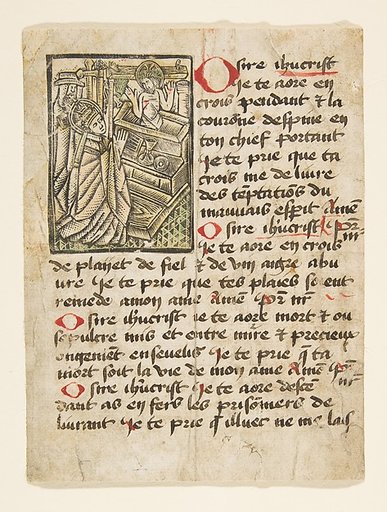 O sire ihucrist
Je te aore en
crois pendant & la
courõne despine en
ton chief portant
Je te prie que ta
crois me deliure
des tẽptatiõs du
mauuais esp̃it Amẽ
O sire ihucrist
Je te aore en crois
de plaiiet de fiel & de vin aigre abu
ure Je te prie que tes plaies soient
remede amon ame Amẽ p̃r nr̃
O sire ihucrist Je te aore mort & ou
sepulcre mis et entre mirre & precieux
ongemẽt enseuelis Je te prie q̃ ta
mort soit la vie de mon ame Amẽ p̃r nr̃
O sire ihucrist Je te aore descẽ
dant as enfers les prisõniers de
liurant Je te prie q̃ illuec ne me lais